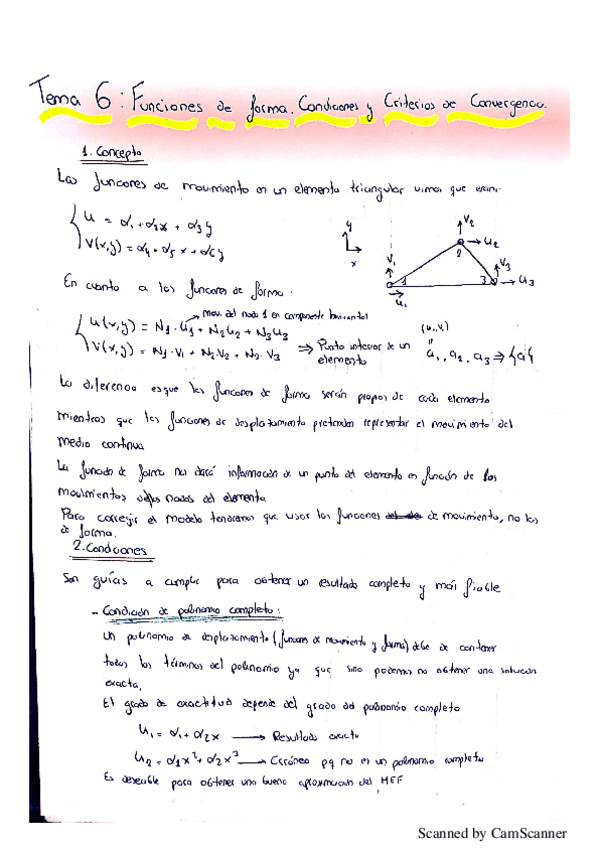 Tema 6: Funciones de forma. Condiciones y Criterios de Convergencia.
1. Concepto
Las funciones de movimiento en un elemento triangular vimos que eran:
u = α₁ + α₂x + α₃y
V(x,y) = α₄ + α₅x + α₆y
y
x
V₁
u₁
1
V₂
u₂
2
V₃
u₃
3
En cuanto a las funciones de forma:
mov. del nodo 1 en componente horizontal
u(x,y) = N₁·u₁ + N₂u₂ + N₃u₃
V(x,y) = N₁·V₁ + N₂·V₂ + N₃·V₃ ⇒ Punto interior de un elemento
(u₁,v₁)
"
a₁, a₂, a₃ ⇒ {a}
La diferencia es que las funciones de forma serán propias de cada elemento
mientras que las funciones de desplazamiento pretenden representar el movimiento del
medio continuo
La función de forma nos dará información de un punto del elemento en función de los
movimientos de los nodos del elemento.
Para corregir el modelo tenemos que usar las funciones de movimiento, no las
de forma.
2. Condiciones
Son guías a cumplir para obtener un resultado completo y más fiable
- Condición de polinomio completo:
Un polinomio de desplazamiento (funciones de movimiento y forma) debe de contener
todos los términos del polinomio ya que sino podemos no obtener una solución
exacta.
El grado de exactitud depende del grado del polinomio completo
u₁ = α₁ + α₂x → Resultado exacto
u₂ = α₁x² + α₂x³ → Erróneo pq no es un polinomio completo
Es deseable para obtener una buena aproximación del MEF
Scanned by CamScanner